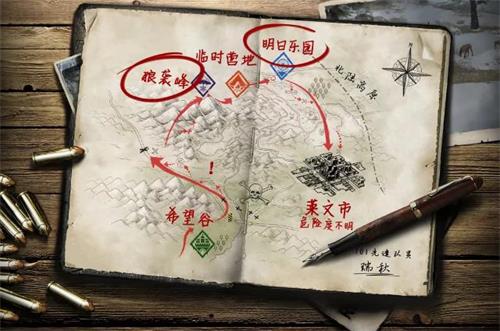 明日乐园
临时营地
狼袭峰
北陆高原
!
希望谷
莱文市
危险度不明
101先遣队员
瑞秋